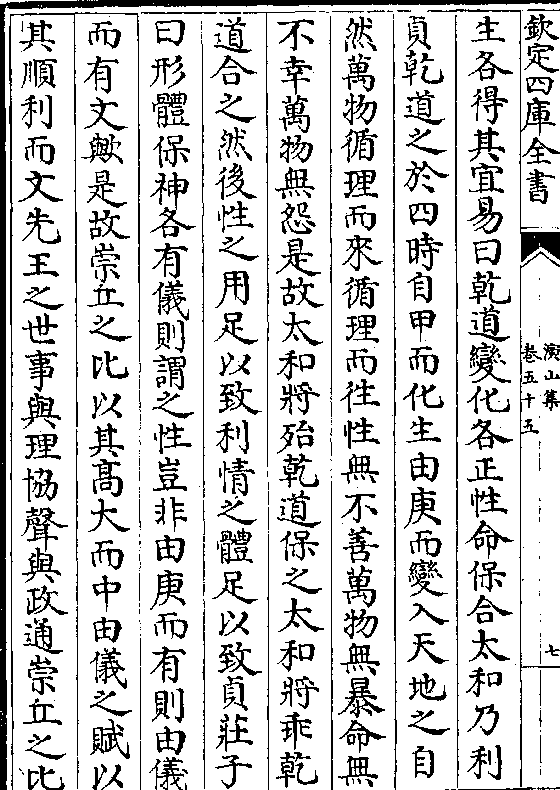 欽定四庫全書
演山集
卷五十五
七
生各得其宜易曰乾道變化各正性命保合太和乃利
貞乾道之於四時自甲而化生由庚而變入天地之自
然萬物循理而來循理而往性無不善萬物無暴命無
不幸萬物無怨是故太和將殆乾道保之太和將乖乾
道合之然後性之用足以致利情之體足以致貞莊子
曰形體保神各有儀則謂之性豈非由庚而有則由儀
而有文歟是故崇丘之比以其髙大而中由儀之賦以
其順利而文先王之世事與理協聲與政通崇丘之比